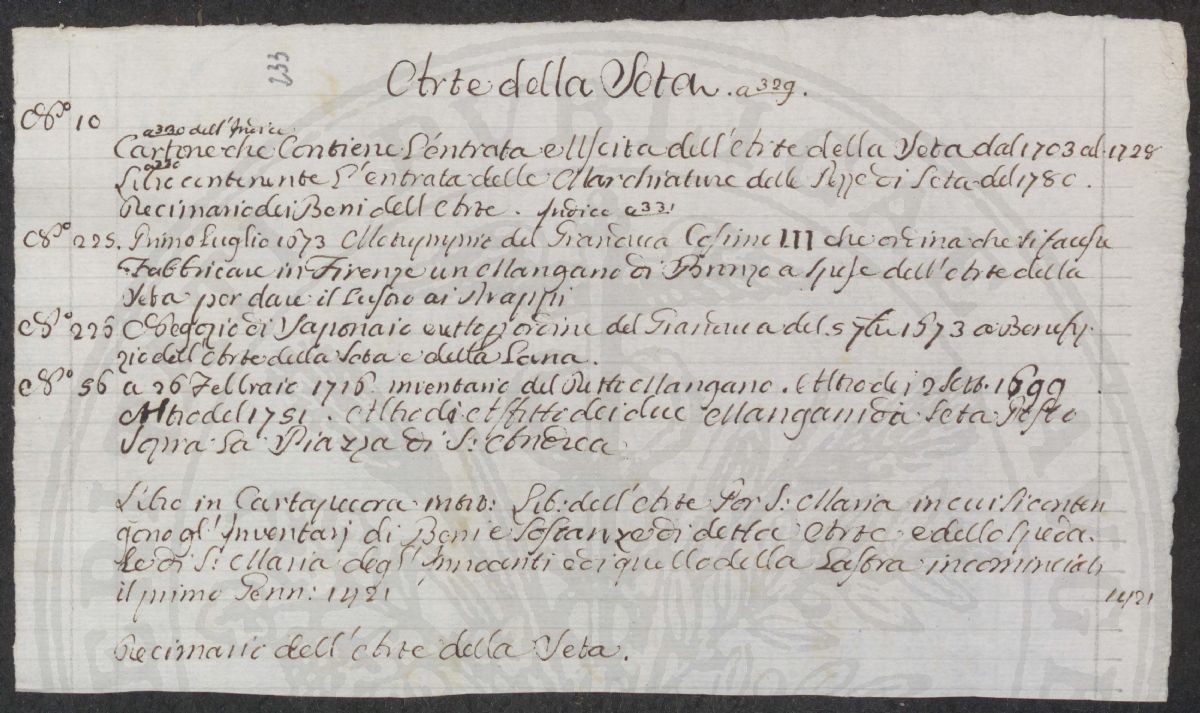 233
Arte della Seta. a 329.
N.º 10
a 330 dell'Indice
Cartone che Contiene L'entrata e Uscita dell'Arte della Seta dal 1703 al 1728
a 330
Libro contenente L'entrata delle Marchiature delle Pezze di Seta del 1780.
Decimario dei Beni dell'Arte. Indice a 331
N.º 225. Primo Luglio 1673 del Granduca Cosimo III che ordina che si facesse
Fabbricare in Firenze un Mangano di Bronzo a spese dell'Arte della
Seta per dare il Lustro ai Drappi
N.º 226 di Saponaio ordine del Granduca del 5 7bre 1673 a Benefi-
zio dell'Arte della Seta e della Lana.
N.º 56 a 26 Febbraio 1716 inventario del Mangano. Altro de 12 Sett. 1699
Altro del 1751. Altro di Affitto dei due Mangani da Seta Posto
Sopra La Piazza di S. Andrea
Libro in Cartapecora intit: Lib. dell'Arte Por S. Maria in cui si conten
gono gl'Inventarj di Beni e Sostanze di detta Arte e dello Speda.
le di S. Maria degl'Innocenti e di quello della Lastra incominciati
il primo Genn: 1421 1421
Decimario dell'Arte della Seta.